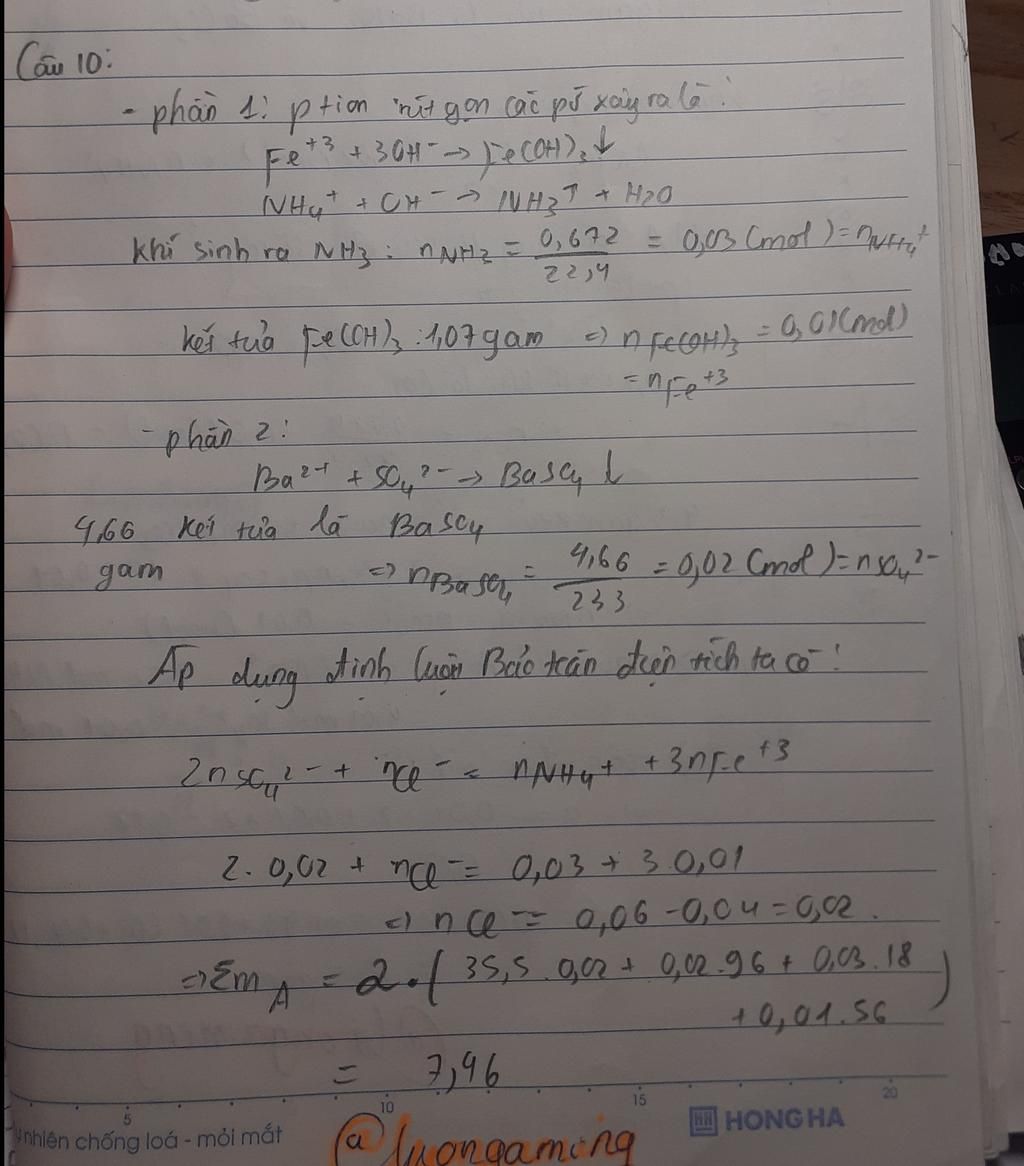 Câu 10:
- phần 1: ption rút gọn các pứ xảy ra là:
Fe⁺³ + 3OH⁻ → Fe(OH)₃↓
NH₄⁺ + OH⁻ → NH₃↑ + H₂O
Khí sinh ra NH₃ : nNH₃ = 0,672/22,4 = 0,03 (mol) = nNH₄⁺
kết tủa Fe(OH)₃ : 1,07 gam ⇒ nFe(OH)₃ = 0,01(mol)
= nFe⁺³
- phần 2:
Ba²⁺ + SO₄²⁻ → BaSO₄ ↓
4,66 kết tủa là BaSO₄
gam ⇒ nBaSO₄ = 4,66/233 = 0,02 (mol) = nSO₄²⁻
Áp dụng định luật Bảo toàn điện tích ta có:
2nSO₄²⁻ + nCl⁻ = nNH₄⁺ + 3nFe⁺³
2. 0,02 + nCl⁻ = 0,03 + 3.0,01
⇒ nCl⁻ = 0,06 - 0,04 = 0,02.
⇒ Σm_A = 2.(35,5.0,02 + 0,02.96 + 0,03.18
+ 0,01.56)
= 7,46
5 10 15 20
nhiên chống loá - mỏi mắt
HH HONG HA
@luongaming